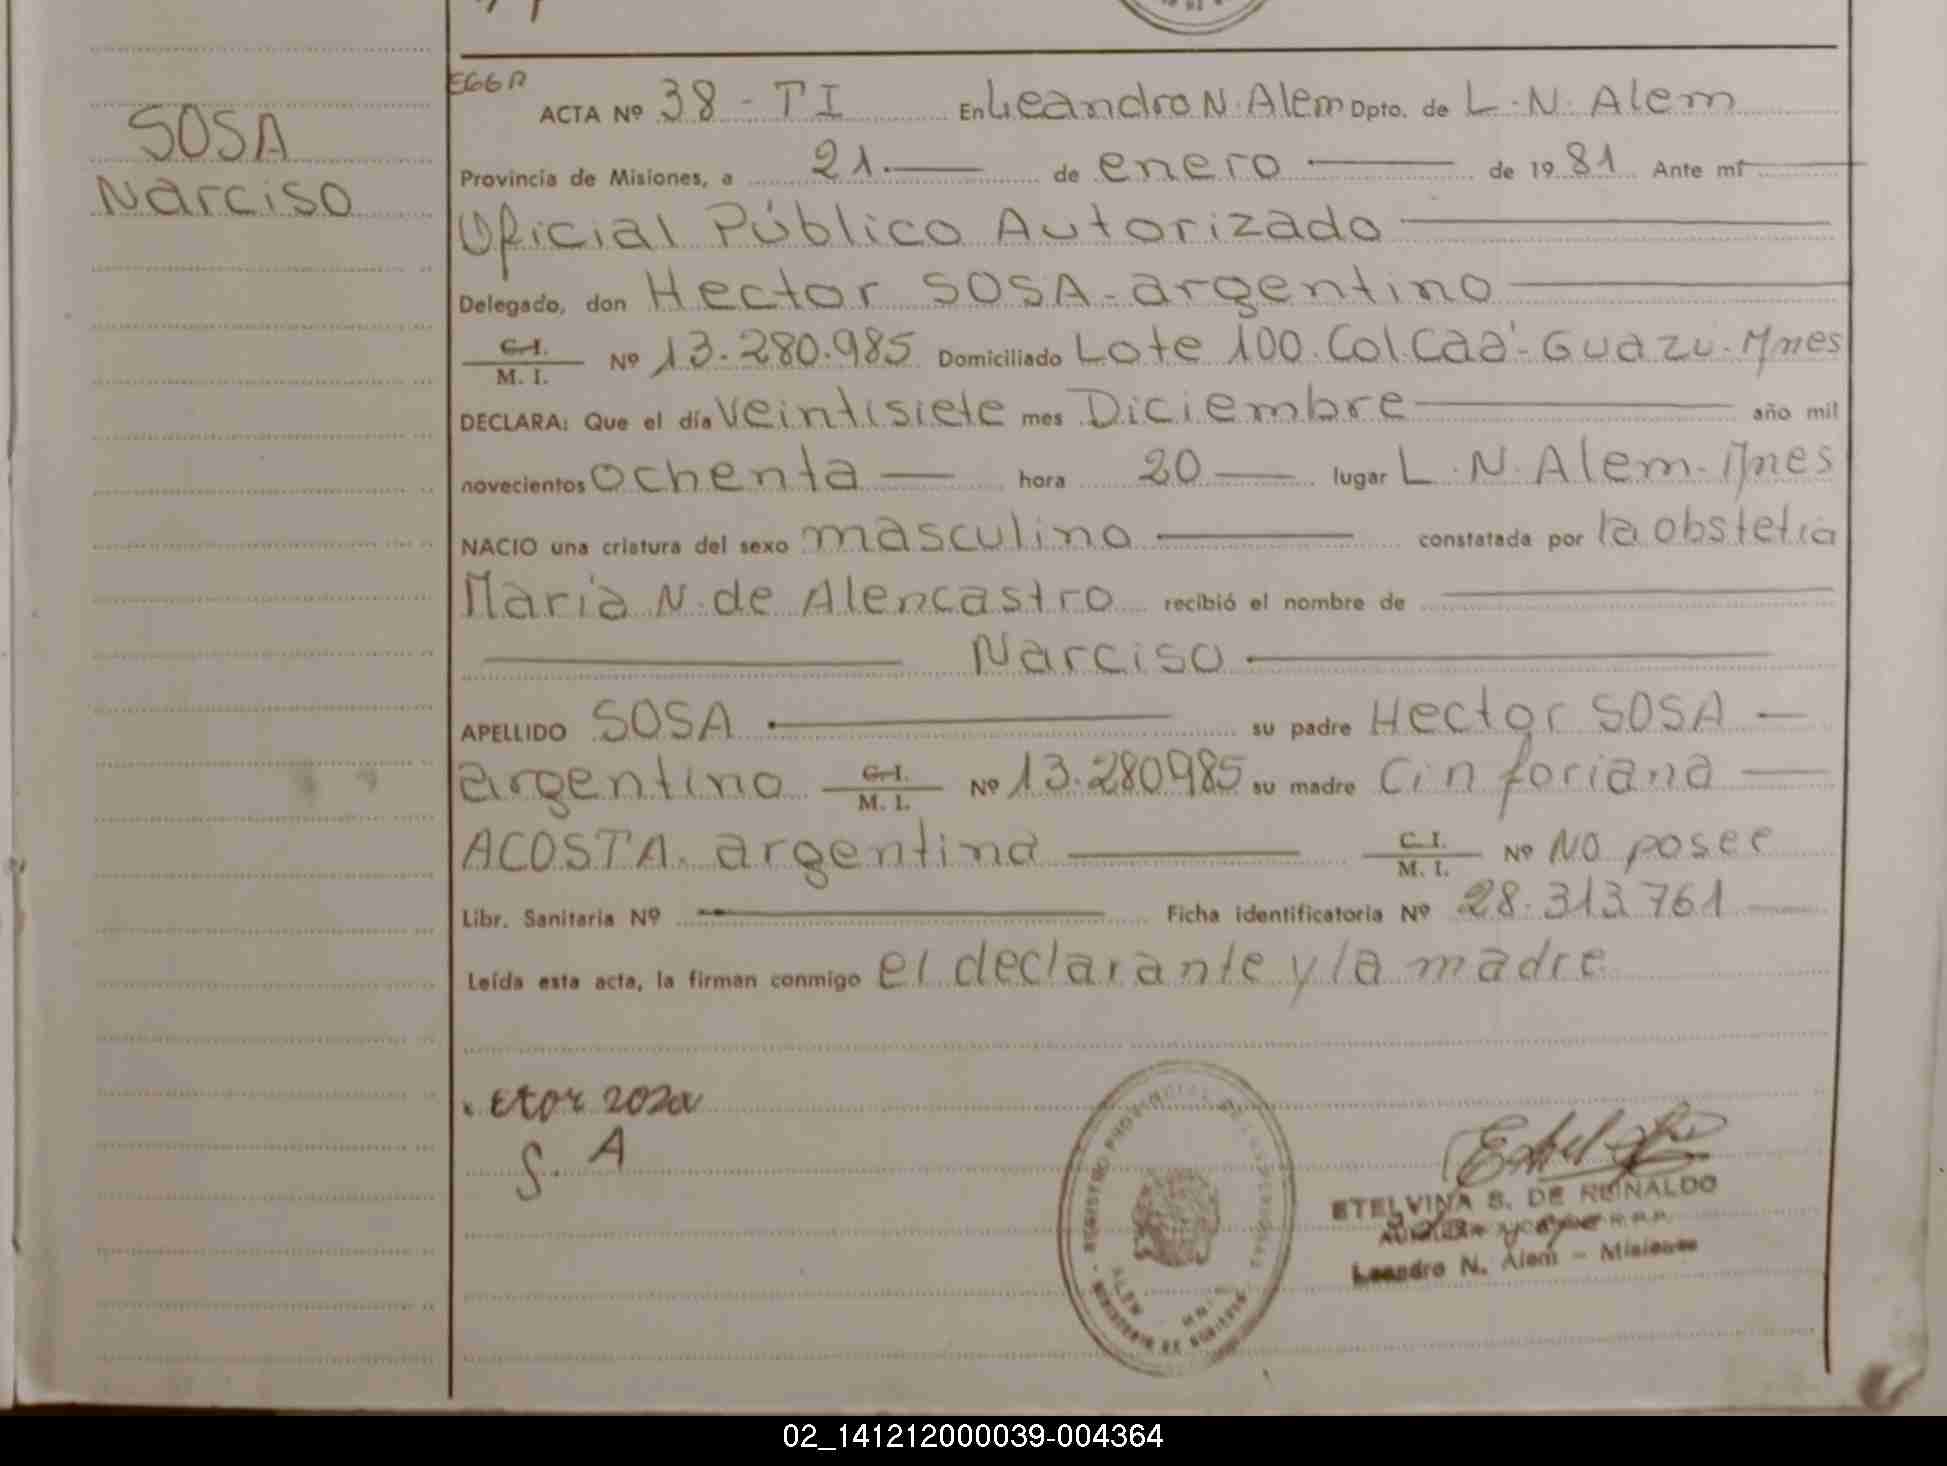 SOSA
Narciso
EGGR
ACTA Nº 38 - TI En Leandro N. Alem Dpto. de L. N. Alem
Provincia de Misiones, a 21 de enero de 1981 Ante mí
Oficial Público Autorizado
Delegado, don Hector SOSA - argentino
C. I.
M. I. Nº 13.280.985 Domiciliado Lote 100. Col. Caá-Guazu. Mnes
DECLARA: Que el día Veintisiete mes Diciembre año mil
novecientos ochenta hora 20 lugar L. N. Alem. Mnes
NACIO una criatura del sexo masculino constatada por la obstetia
Maria N. de Alencastro recibió el nombre de
Narciso
APELLIDO SOSA su padre Hector SOSA
argentino C. I.
M. I. Nº 13.280985 su madre Cinforiana
ACOSTA. argentina C. I.
M. I. Nº No posee
Libr. Sanitaria Nº Ficha identificatoria Nº 28.313761
Leída esta acta, la firman conmigo el declarante y la madre
etor 202a
S. A
REGISTRO PROVINCIAL DE LAS PERSONAS
ALEM
MINISTERIO DE GOBIERNO
ETELVINA S. DE REINALDO
Leandro N. Alem - Misiones
02_141212000039-004364